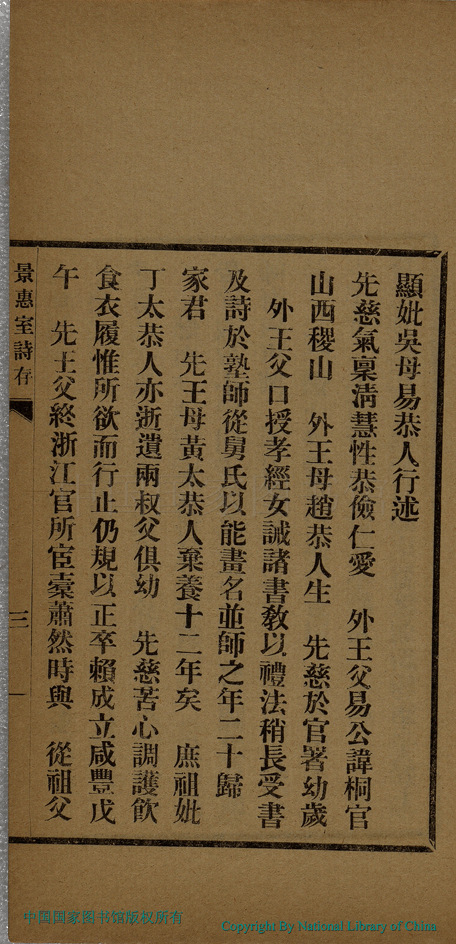 顯妣吳母易恭人行述
先慈氣稟淸慧性恭儉仁愛　外王父易公諱桐官
山西稷山　外王母趙恭人生　先慈於官署幼歲
外王父口授孝經女誡諸書敎以禮法稍長受書
及詩於塾師從舅氏以能畫名並師之年二十歸
家君　先王母黃太恭人棄養十二年矣　庶祖妣
丁太恭人亦逝遺兩叔父俱幼　先慈苦心調護飮
食衣履惟所欲而行止仍規以正卒賴成立咸豐戊
午　先王父終浙江官所宦橐蕭然時與　從祖父
景惠室詩存
三
中国国家图书馆版权所有
Copyright By National Library of China